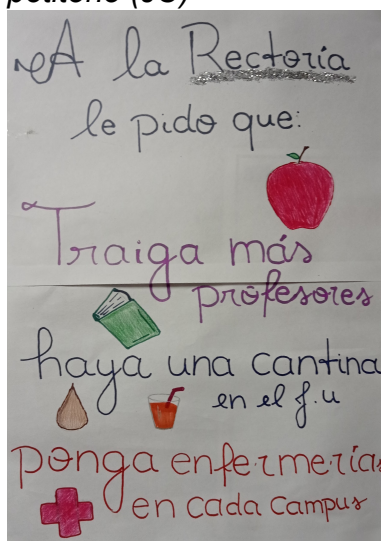 A la Rectoría
le pido que:
Traiga más
profesores
haya una cantina
en el f.u
ponga enfermerías
en cada campus